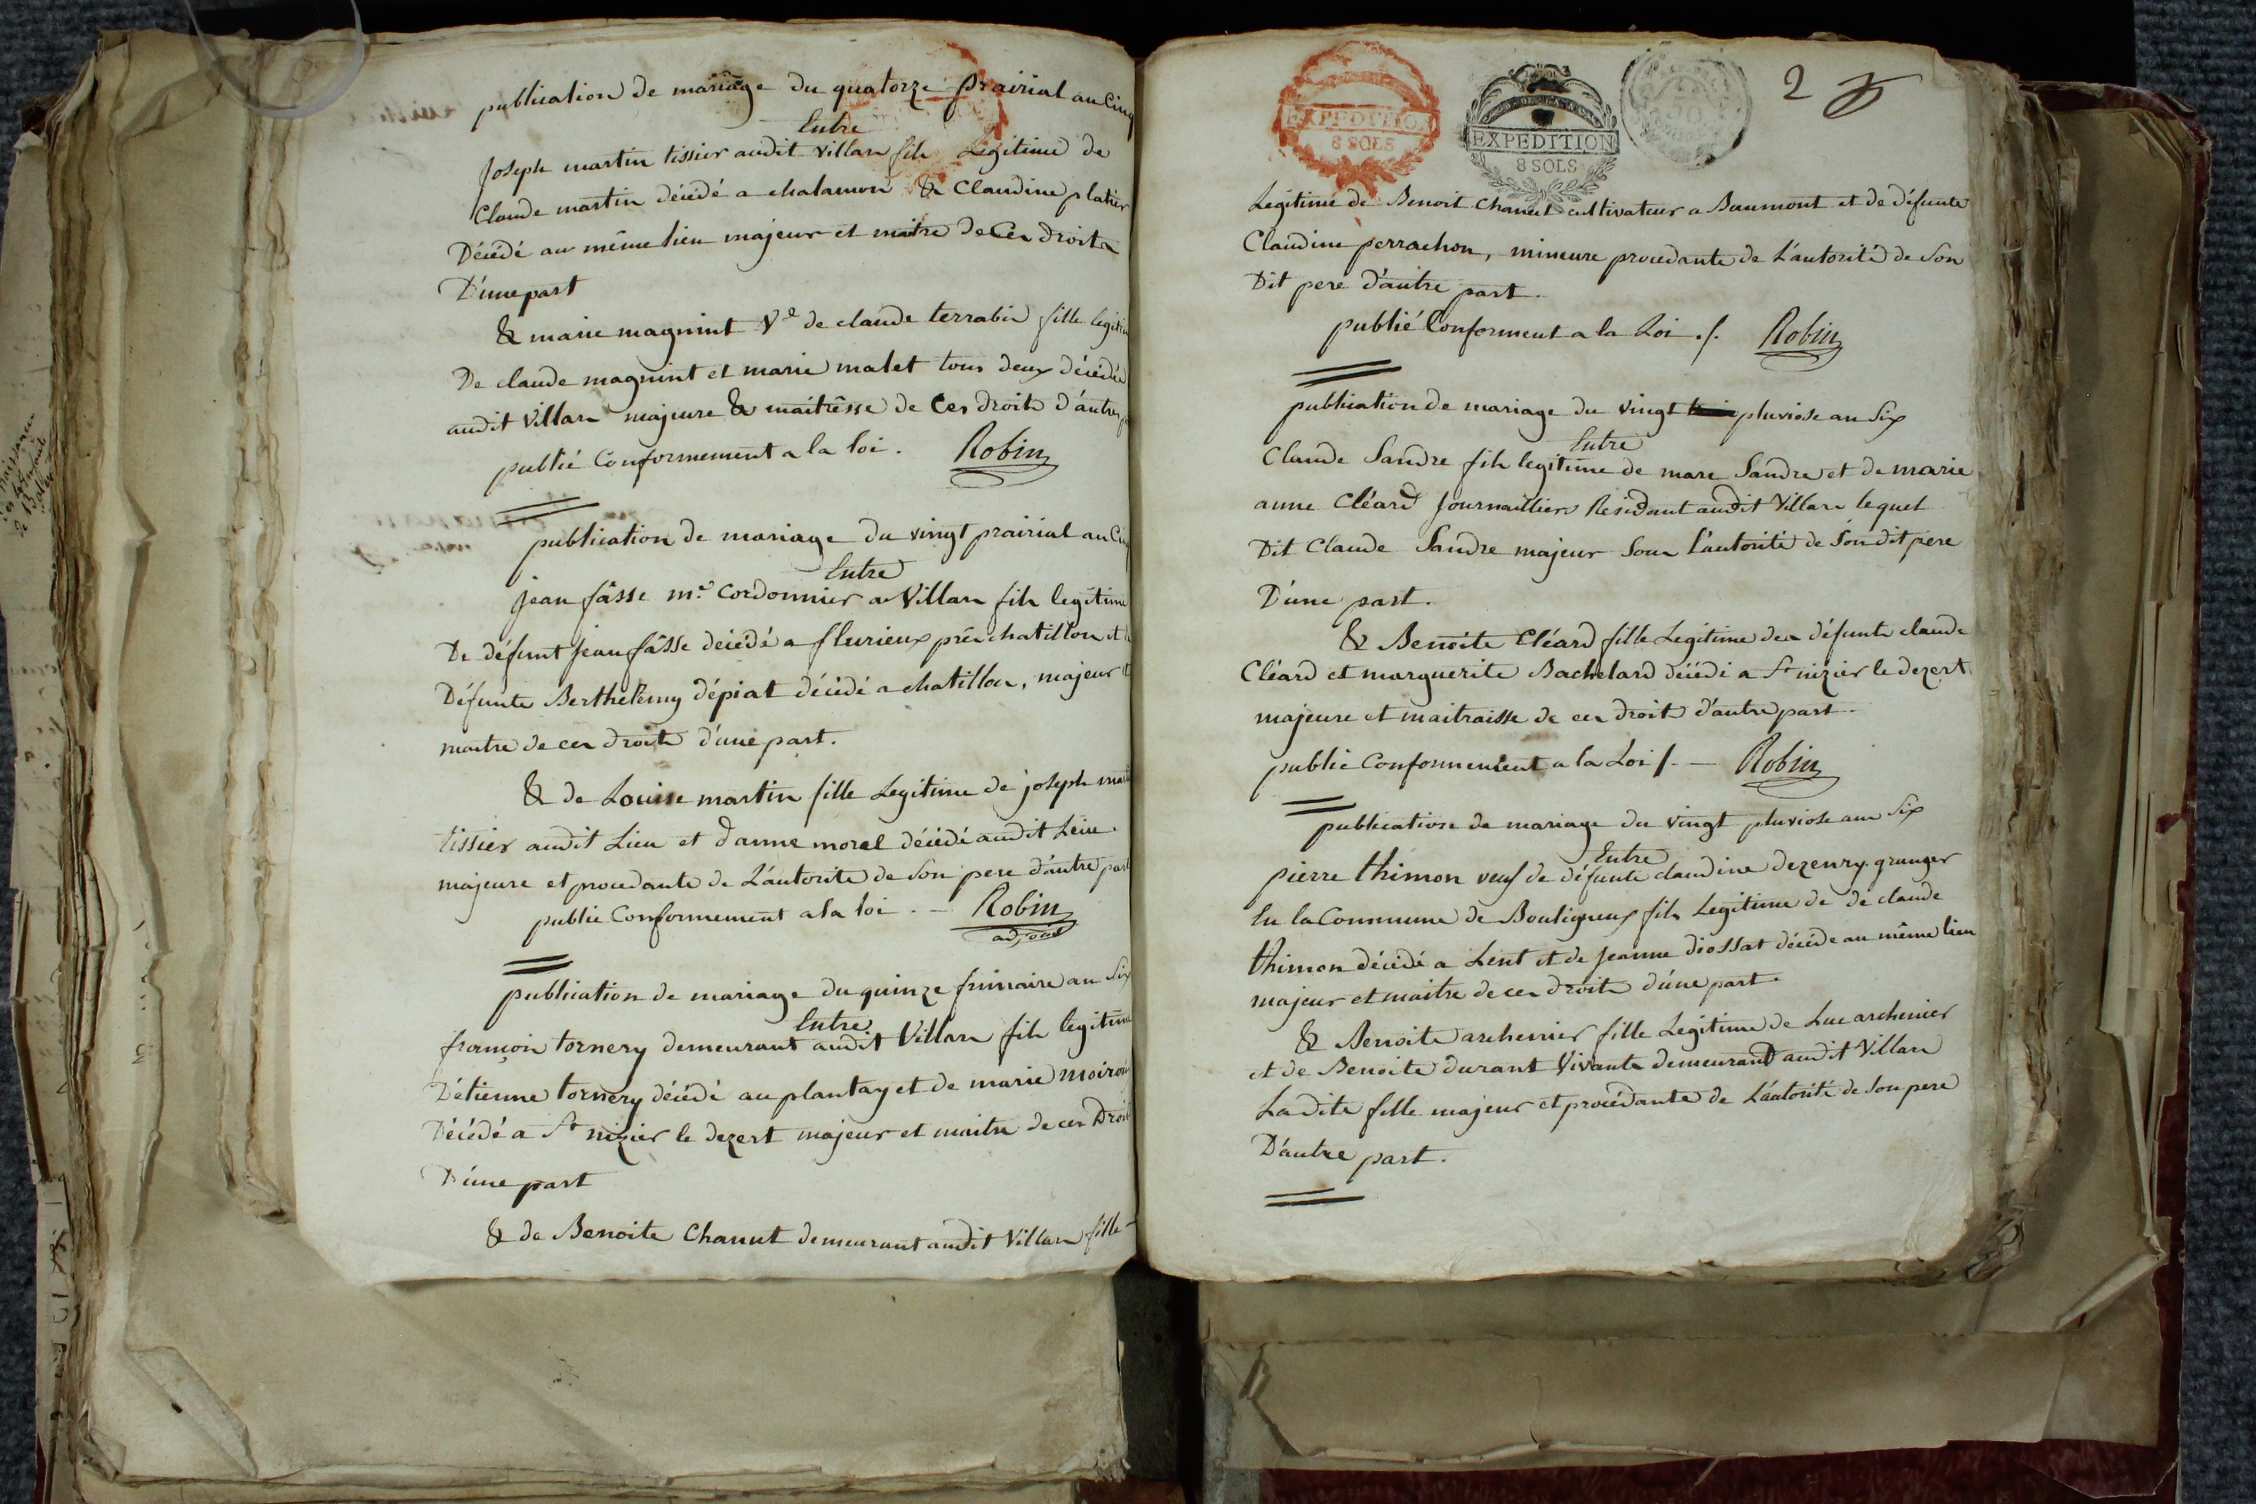 publication de mariage du quatorze prairial an Cinq
Entre
Joseph martin tissier audit villars fils Légitime de
Claude martin décédé a chalamon & Claudine platier
Décédé au même lieu majeur et maitre de Ces droits
D'une part
& marie magnint Ve de claude terrabin fille legiti
De claude magnint et marie malet tous deux décédés
audit villars majeure & maitrêsse de Ces droits d'autre
publié Conformement a la loi. Robin
publication de mariage du vingt prairial an Cinq
Entre
jean fâsse me Cordonnier a Villars fils legitime
De défunt jean fâsse decédé a flurieux près chatillon et
Défunte Berthelemy dépiat décédé a chatillon, majeur et
maitre de ces droits d'une part.
& de Louise martin fille Legitime de joseph
tissier audit Lieu et d'anne morel décédé audit Leiu.
majeure et procedante de L'autorite de Son pere d'autre part
publié Conformement a la loi. – Robin
adjoint
publication de mariage du quinze frimaire an Six
Entre
françon tornery demeurant audit Villars fils legitime
D'étienne tornery décédé au plantay et de marie moiron
Décédé a St nizier le dezert majeur et maitre de ces Droits
D'une part
& de Benoite Chanut demeurant audit Villars fille
2
EXPEDITION
8 SOLS
EXPEDITION
8 SOLS
Legitime de Benoit Chanut cultivateur a Baumont et de défunte
Claudine perrachon, mineure procedante de L'autorité de Son
Dit pere d'autre part.
publié Conforment a la Loi ./. Robin
publication de mariage du vingt pluviose an Six
Entre
Claude Sandre fils legitime de marc Sandre et de marie
anne Cléard Journaillier Residant audit Villars lequel
Dit Claude Sandre majeur Sous L'autorité de Son dit père
D'une part.
& Benoite Cléard fille Legitime des défunts claude
Cléard et marguerite Bachelard décédé a St nizier le dezert
majeure et maitraisse de ces droits d'autre part.
publié Conformement a la Loi /. – Robin
publication de mariage du vingt pluviose an Six
Entre
pierre thimon veuf de défunte claudine dezenry granger
En la Commune de Bouligneux fils Legitime de de claude
thimon décédé a Lent et de jeanne diossat décédé au même lieu
majeur et maitre de ces droits d'une part.
& Benoite archenier fille Legitime de Luc archenier
et de Benoite durant Vivante demeurant audit Villars
La dite fille majeur et procédante de L'autorité de Son pere
D'autre part.